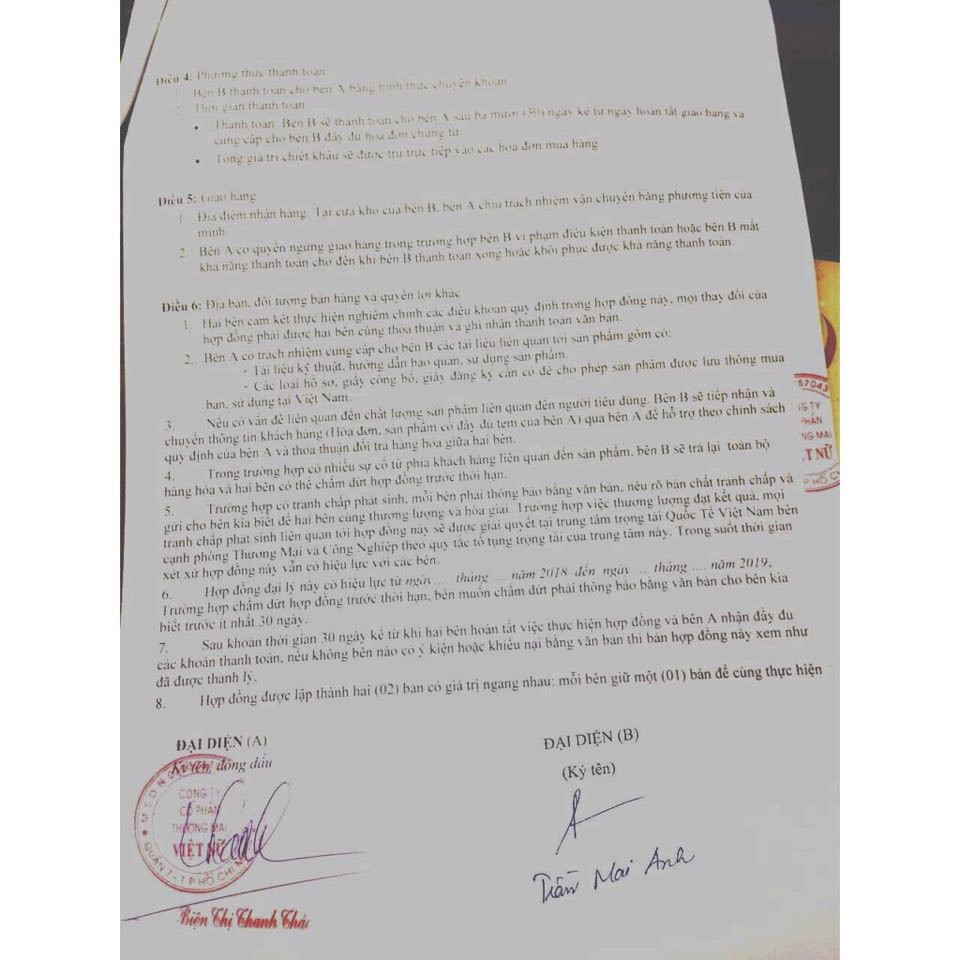 Điều 4: Phương thức thanh toán
1. Bên B thanh toán cho bên A bằng hình thức chuyển khoản
2. Thời gian thanh toán
• Thanh toán: Bên B sẽ thanh toán cho bên A sau ba mươi (30) ngày kể từ ngày hoàn tất giao hàng và
cung cấp cho bên B đầy đủ hóa đơn chứng từ
• Tổng giá trị chiết khấu sẽ được trừ trực tiếp vào các hóa đơn mua hàng
Điều 5: Giao hàng
1. Địa điểm nhận hàng: Tại cửa kho của bên B, bên A chịu trách nhiệm vận chuyển bằng phương tiện của
mình
2. Bên A có quyền ngừng giao hàng trong trường hợp bên B vi phạm điều kiện thanh toán hoặc bên B mất
khả năng thanh toán cho đến khi bên B thanh toán xong hoặc khôi phục được khả năng thanh toán
Điều 6: Địa bàn, đối tượng bán hàng và quyền lợi khác
1. Hai bên cam kết thực hiện nghiêm chỉnh các điều khoản quy định trong hợp đồng này, mọi thay đổi của
hợp đồng phải được hai bên cùng thỏa thuận và ghi nhận thanh toán văn bản.
2. Bên A có trách nhiệm cung cấp cho bên B các tài liệu liên quan tới sản phẩm gồm có:
- Tài liệu kỹ thuật, hướng dẫn bảo quản, sử dụng sản phẩm.
- Các loại hồ sơ, giấy công bố, giấy đăng ký cần có để cho phép sản phẩm được lưu thông mua
bán, sử dụng tại Việt Nam.
3. Nếu có vấn đề liên quan đến chất lượng sản phẩm liên quan đến người tiêu dùng. Bên B sẽ tiếp nhận và
chuyển thông tin khách hàng (Hóa đơn, sản phẩm có đầy đủ tem của bên A) qua bên A để hỗ trợ theo chính sách
quy định của bên A và thỏa thuận đổi trả hàng hóa giữa hai bên.
4. Trong trường hợp có nhiều sự cố từ phía khách hàng liên quan đến sản phẩm, bên B sẽ trả lại toàn bộ
hàng hóa và hai bên có thể chấm dứt hợp đồng trước thời hạn.
5. Trường hợp có tranh chấp phát sinh, mỗi bên phải thông báo bằng văn bản, nêu rõ bản chất tranh chấp và
gửi cho bên kia biết để hai bên cùng thương lượng và hòa giải. Trường hợp việc thương lượng đạt kết quả, mọi
tranh chấp phát sinh liên quan tới hợp đồng này sẽ được giải quyết tại trung tâm trọng tài Quốc Tế Việt Nam bên
cạnh phòng Thương Mại và Công Nghiệp theo quy tắc tố tụng trọng tài của trung tâm này. Trong suốt thời gian
xét xử hợp đồng này vẫn có hiệu lực với các bên.
6. Hợp đồng đại lý này có hiệu lực từ ngày .... tháng .... năm 2018 đến ngày .... tháng .... năm 2019,
Trường hợp chấm dứt hợp đồng trước thời hạn, bên muốn chấm dứt phải thông báo bằng văn bản cho bên kia
biết trước ít nhất 30 ngày.
7. Sau khoản thời gian 30 ngày kể từ khi hai bên hoàn tất việc thực hiện hợp đồng và bên A nhận đầy đủ
các khoản thanh toán, nếu không bên nào có ý kiến hoặc khiếu nại bằng văn bản thì bản hợp đồng này xem như
đã được thanh lý.
8. Hợp đồng được lập thành hai (02) bản có giá trị ngang nhau: mỗi bên giữ một (01) bản để cùng thực hiện
ĐẠI DIỆN (A)
Ký tên, đóng dấu
CÔNG TY
CỔ PHẦN
THƯƠNG MẠI
VIỆT NỮ
QUẬN 7 - T.P HỒ CHÍ
Biện Thị Thanh Thảo
ĐẠI DIỆN (B)
(Ký tên)
Trần Mai Anh
57043
NG TY
PHẦN
NG MẠI
T NỮ
P HỒ C